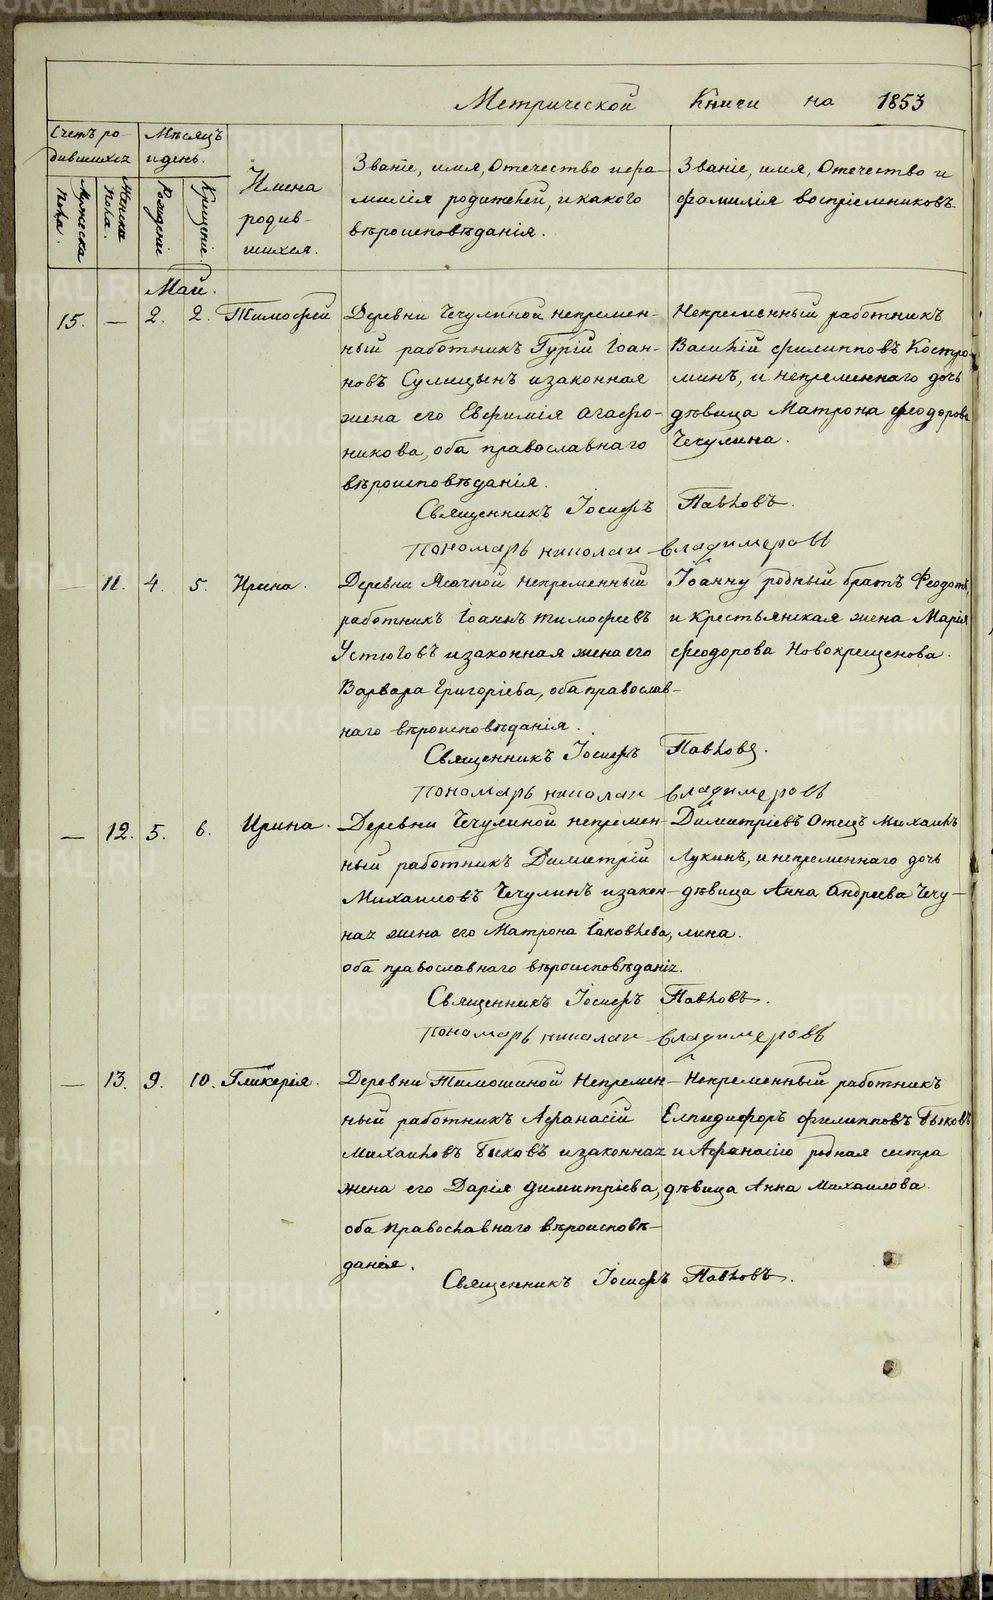 Метрической Книги на 1853
Счетъ ро-
дившихся
Мѣсяцъ
и день.
Мужеска
пола.
Женска
пола.
Рожденіе
Крещеніе.
Имена
родив-
шихся.
Званіе, имя, Отечество и фа-
милія родителей, и какого
вѣроисповѣданія.
Званіе, имя, Отечество и
фамилія воспріемниковъ.
Май.
15. — 2. 2. Тимофей
Деревни Чечулиной непремен-
ный работникъ Гурій Іоан-
новъ Сулицынъ и законная
жена его Евфимія Агафо-
никова, оба православнаго
вѣроисповѣданія.
Непременный работникъ
Василій Филипповъ Костро-
минъ, и непременнаго дочь
дѣвица Матрона Феодорова
Чечулина.
Священникъ Іосифъ Павловъ.
Пономарь Николай Владимеровъ
— 11. 4. 5. Ирина.
Деревни Ясачной Непременный
работникъ Іоаннъ Тимофеевъ
Устюговъ и законная жена его
Варвара Григоріева, оба православ-
наго вѣроисповѣданія.
Іоанну родный братъ Феодотъ,
и Крестьянская жена Марія
Феодорова Новокрещенова.
Священникъ Іосифъ Павловъ.
Пономарь Николай Владимеровъ
— 12. 5. 6. Ирина.
Деревни Чечулиной непремен-
ный работникъ Димитрій
Михаиловъ Чечулинъ и закон-
ная жена его Матрона Іаковлева,
оба православнаго вѣроисповѣданія.
Димитріевъ Отецъ Михаилъ
Лукинъ, и непременнаго дочь
дѣвица Анна Андреева Чечу-
лина.
Священникъ Іосифъ Павловъ.
Пономарь Николай Владимеровъ
— 13. 9. 10. Гликерія.
Деревни Тимошиной Непремен-
ный работникъ Афанасій
Михаиловъ Быковъ и законная
жена его Дарія Димитріева,
оба Православнаго вѣроисповѣ-
данія.
Непременный работникъ
Елпидифоръ Филипповъ Быковъ
и Афанасію родная сестра
дѣвица Анна Михаилова.
Священникъ Іосифъ Павловъ.
METRIKI.GASO-URAL.RU